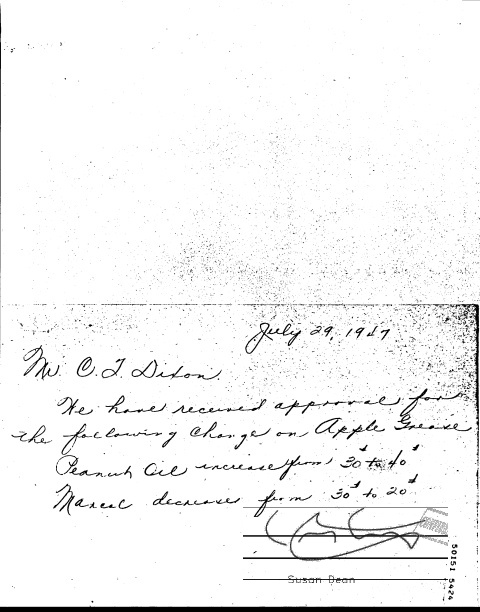 July 29, 1947
Mr C. T. Dixon.
We have received approval for
the following change on Apple Grease
Peanut Oil increase from 30# to 40#
decreases from 30# to 20#
Susan Dean
50151 5424